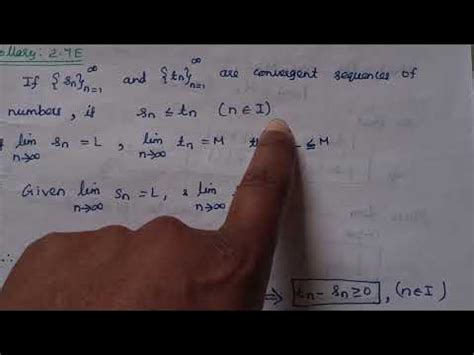 ollary: 2.7E
If {sn}∞n=1 and {tn}∞n=1 are convergent sequences of
numbers, if sn ≤ tn (n ∈ I)
lim n→∞ sn = L, lim n→∞ tn = M ≤ M
Given lim n→∞ sn = L, & lim n→∞
⇒ tn - sn ≥ 0, (n ∈ I)